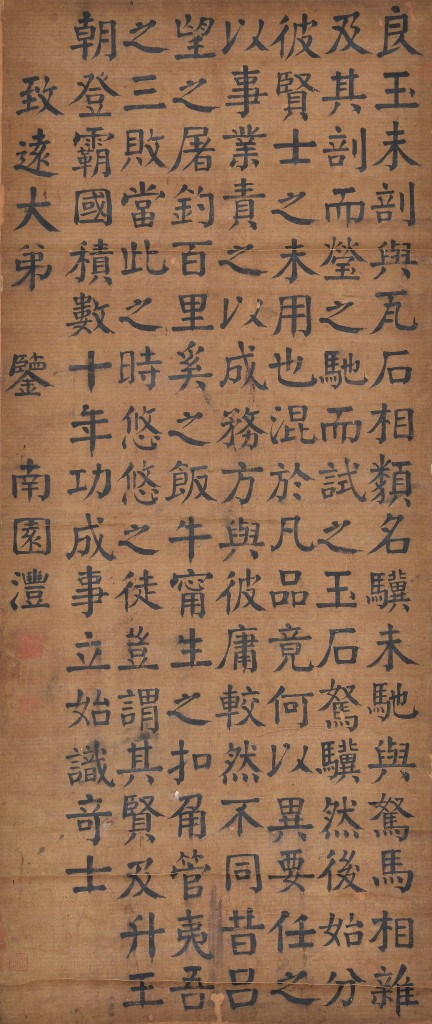 良玉未剖與瓦石相類名驥未馳與駑馬相雜
及其剖而瑩之馳而試之玉石駑驥然後始分
彼賢士之未用也混於凡品竟何以異要任之
以事業責之以成務方與彼庸較然不同昔呂
望之屠釣百里奚之飯牛甯生之扣角管夷吾
之三敗當此之時悠悠之徒豈謂其賢及升王
朝登霸國積數十年功成事立始識奇士
致遠大弟 鑒 南園灃